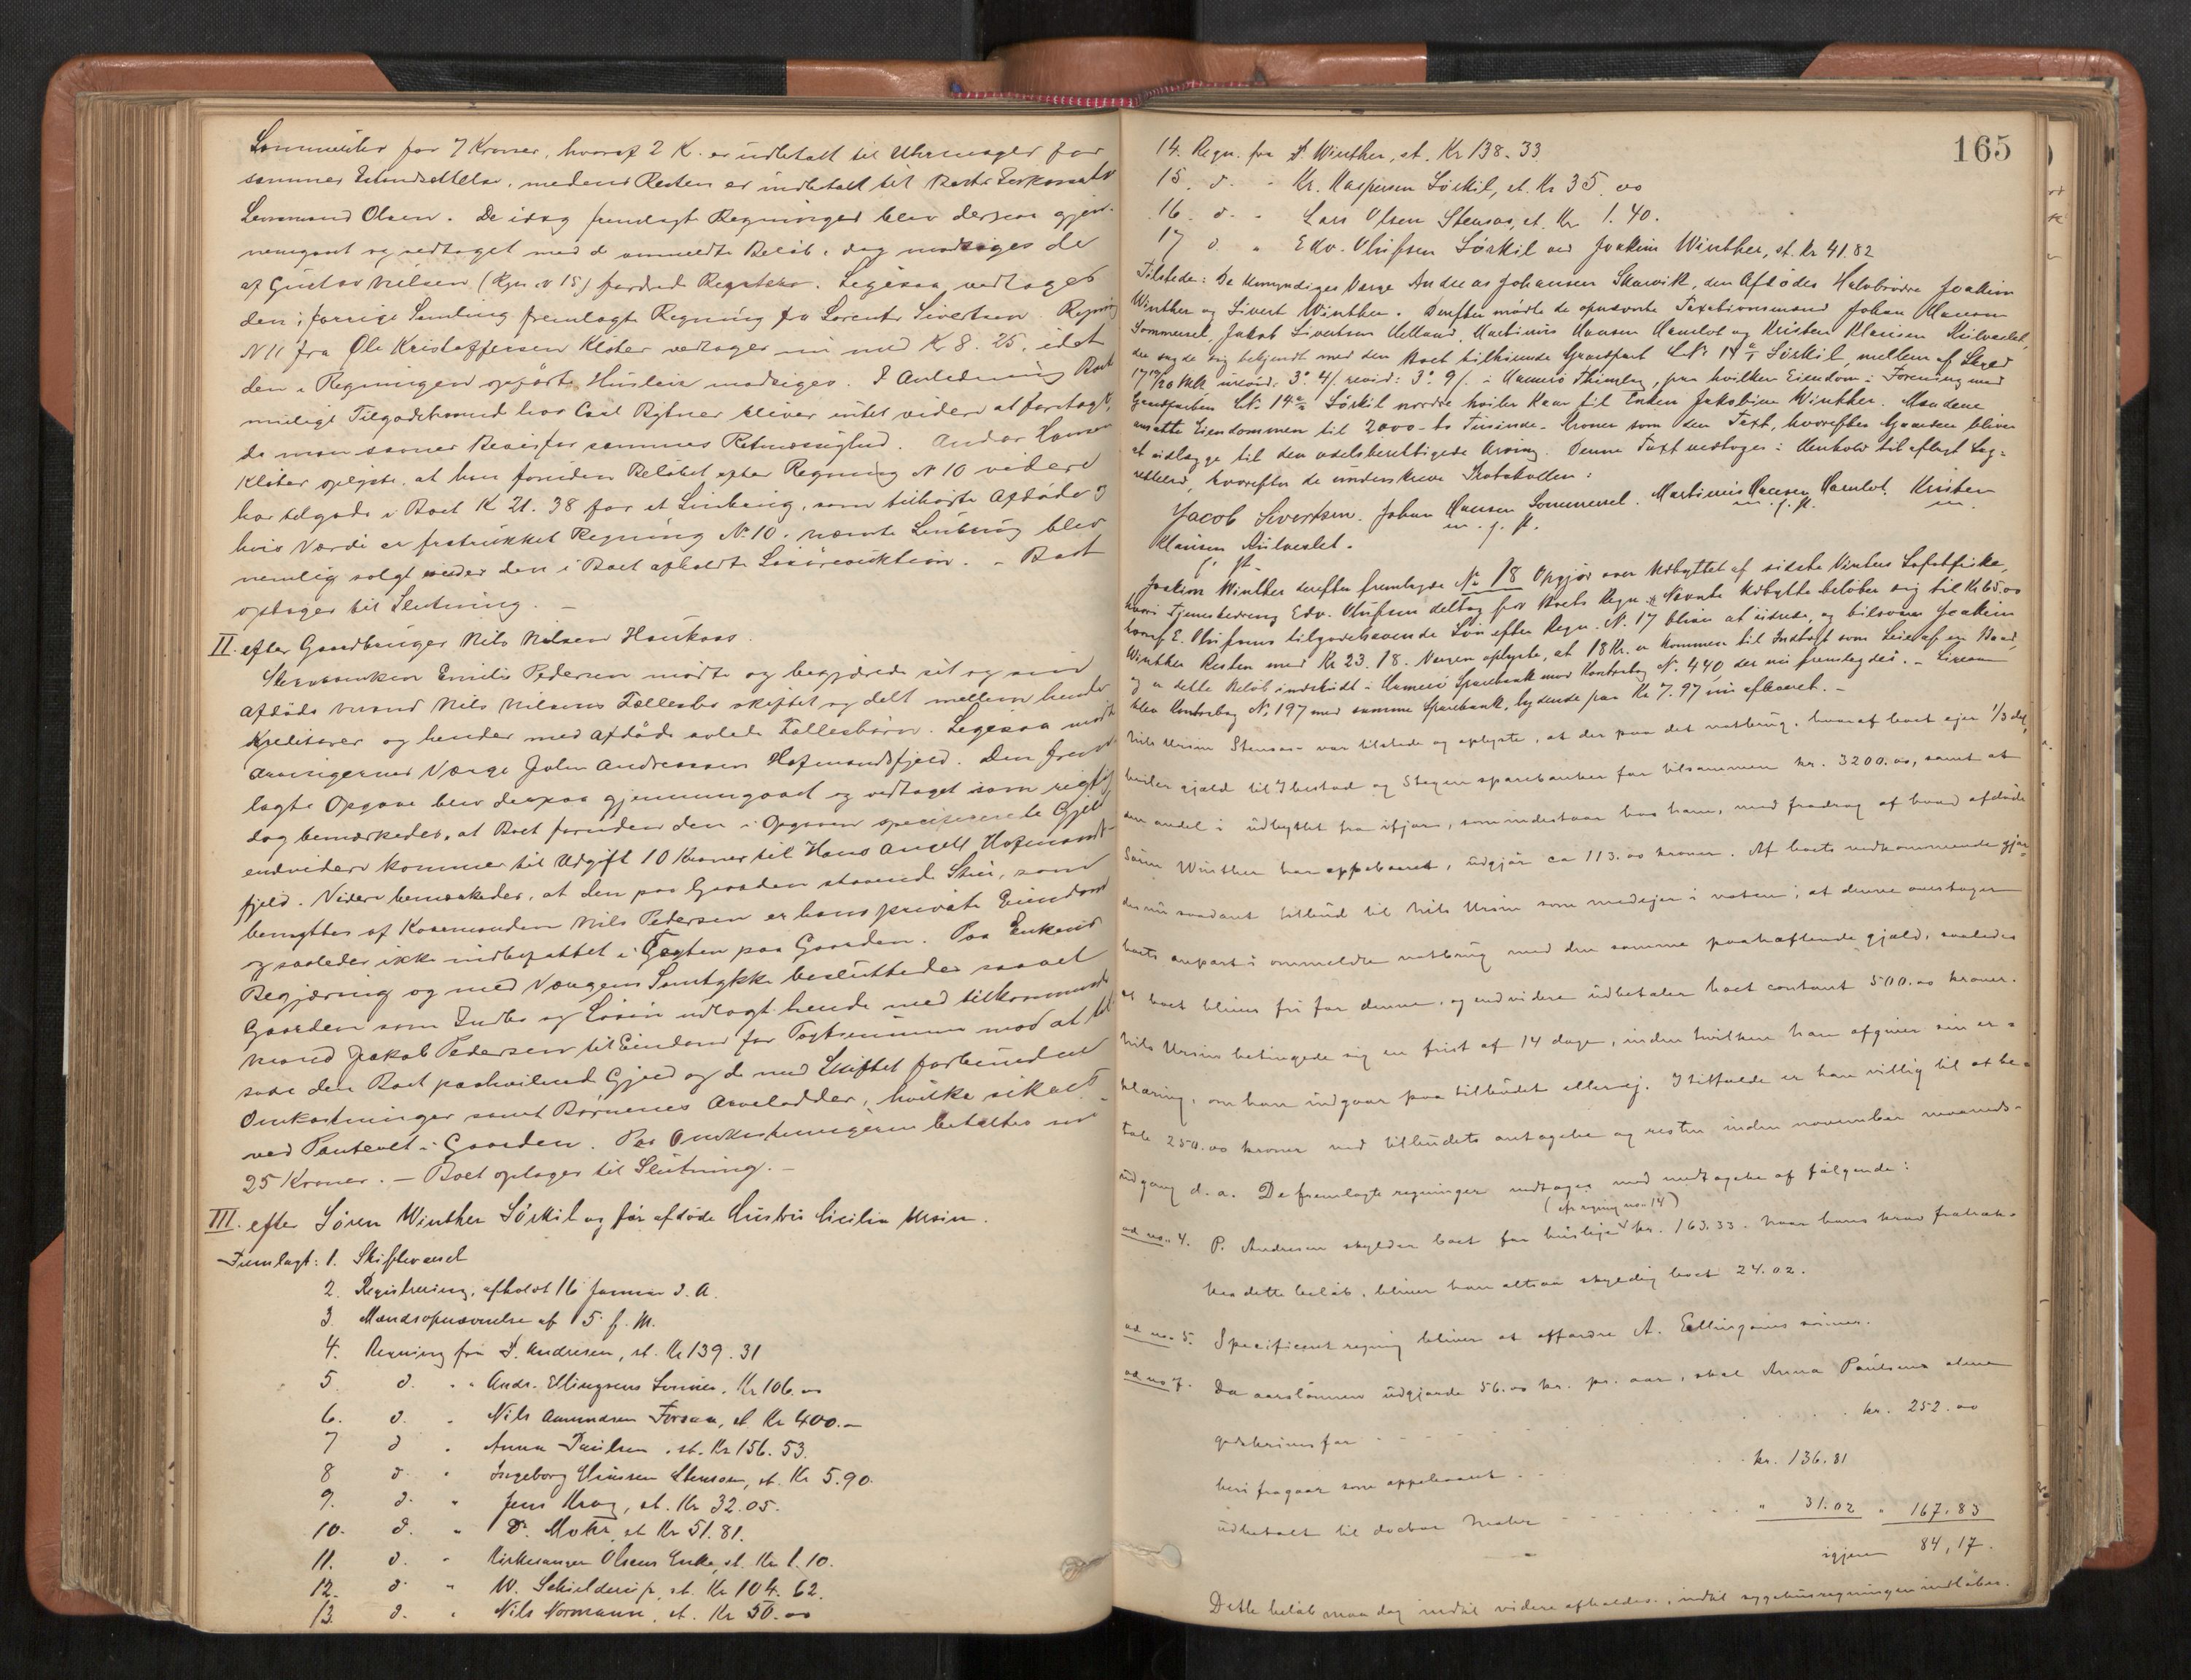 Lommeuhr for 7 Kroner, hvoraf 2 Kr. er udbetalt til Uhrmager for
sammes Istandsættelse, medens Resten er indbetalt til Boets
Lensmand Olsen. De idag fremlagte Regninger blev derpaa gjen-
nemgaaet og vedtaget med de anmeldte Beløb, dog modsiges de
af Gustav Nielsen (Rgn. N 15) fordrede Ligesaa vedtages
den i forrige Samling fremlagte Regning fra Lorents Sivertsen. Regning
N 11 fra Ole Kristoffersen Kløter vedtages nu med Kr 8.25, idet
den i Regningen opførte Husleie modsiges. I Anledning Boets
mulige Tilgodehavend hos Carl Bytner bliver intet videre at foretage,
da man savner Bevis for sammes Retmæssighed. Andor Hansen
Kløter oplyste, at han foruden Beløbet efter Regning N 10 videre
har tilgode i Boet K 21.38 for et Linbrug, som tilhørte Afdøde og
hvis Værdi er fratrukket Regning N. 10. nævnte Linbrug blev
nemlig solgt under den i Boet afholdte Løsøreauktion. - Boet
optages til Slutning. -
II. efter Gaardbruger Nils Nilsen Haukaas.
Enken Emilie Pedersen mødte og begjærede sit og sin
afdøde Mand Nils Nilsens Fællesbo skiftet og delt mellem hende
Kreditorer og hendes med afdøde avlede Fællesbørn. Ligesaa mødte
Arvingernes Værge John Andreassen Hofmandsfjeld. Den frem-
lagte Opgave blev derpaa gjennemgaaet og vedtaget som rigtig
dog bemærkedes, at Boet foruden den i Opgaven specificerede Gjeld
endvidere kommer til Udgift 10 Kroner til Hans Angell Hofmands-
fjeld. Videre bemærkedes, at den paa Gaarden staaende Skur, som
benyttes af Nils Pedersen er hans private Eiendom
og saaledes ikke indbefattet i Taxten paa Gaarden. Paa Enkens
Begjæring og med Værgens Samtykke besluttedes saavel
Gaarden som Indbo og Løsøre udlagt hende med tilkommende
Mand Jakob Pedersen til Eiendom for Taxtsummen mod at til-
svare den Boet paahvilende Gjeld og de med Skiftet forbundne
Omkostninger samt Børnenes Arvelodder, hvilke sikres
ved Panteret i Gaarden. Paa Omkostningerne betaltes nu
25 Kroner. - Boet optages til Slutning. -
III. efter Søren Winther Sørkil og før afdøde Hustru Cicilia Ursin.
Fremlagt: 1. Skiftevarsel
2. Registrering, afholdt 16 Januar d. A.
3. Mandsopnævnelse af 15 f. M.
4. Regning fra P. Andresen, st. Kr 139.31
5. d. " Andr. Ellingsens Sønner, Kr 106.00
6. d. " Nils Aamundsen Forsaa, st Kr 400.-
7 d " Anna Paulsen, st. Kr 156.53.
8 d. " Ingeborg Stensøen, st. Kr 5.90.
9. d. " Jens Krog, st. Kr 32.05.
10. d. " D. Mohr, st Kr 51.81.
11. d. " Kirkesanger Olsens Enke, st. Kr 1.10.
12. d " W. Schielderup, st. Kr 104.62.
13. d. " Nils Normann, st. Kr 50.00
165
14. Regn. fra P. Winther, st. Kr 138.33
15. d. " Kr. Kaspersen Sørkil, st. Kr 35.00
16. d. " Lars Olsen Stensøen, st. Kr 1.40.
17 d " Edv. Olufsen Sørkil ved Joakim Winther, st. Kr 41.82
Tilstede: De Umyndiges Værge Andreas Johansen Skarvik, den Afdødes Halvbrødre Joakim
Winther og Sivert Winther. Derefter mødte de opnævnte Taxationsmænd Johan Hansen
Sommersel, Jakob Sivertsen Helland, Martinus Hansen Hamlot og Kristen Klausen Kulveslet,
der sagde sig bekjendt med den Boet tilhørende Gaardpart L.Nr. 14 a/1 Sørkil mellem af Skyld
urevid. 3 o. 4/ revid: 3 o. 9/. i Hamerø Thinglag, paa hvilken Eiendom i Forening med
Gaardparten L.Nr. 14 Sørkil nordre hviler Kaar til Enken Jakobine Winther. Mændene
ansatte Eiendommen til 2000 - to Tusinde - Kroner som den Taxt, hvorefter Gaarden bliver
at udlægge til den odelsberettigede Arving. Denne Taxt vedtoges i Henhold til aflagt Lag-
retteed, hvorefter de underskrev Protokollen:
Jacob Sivertsen. Johan Hansen Sommersel. Martinus Hansen Hamlot. Kristen
m. p. P. m. p. P. m.
Klausen Kulveslet.
p. P.
Joakim Winther derefter fremlagde Nr. 18 Opgjør over Udbyttet af sidste Vinters Lofotfiske,
hvori Tjenestedreng Edv. Olufsen deltog for Boets Regn. Nævnte Udbytte beløber sig til Kr 65.00
hvoraf E. Olufsens tilgodehavende Løn efter Regn. N. 17 bliver at udrede, og tilsvarer Joakim
Winther Resten med Kr 23.18. Værgen oplyste, at 18 Kr. er kommen til Indtægt som Leie af en Baad
og er dette Beløb indskudt i Hamerø Sparebank mod Kontrabog N. 440 der nu fremlagdes. - Ligesaa
blev Kontrabog N. 197 med samme Sparebank, lydende paa Kr 7.97 nu afleveret. -
Nils Ursin Stensøen var tilstede og oplyste, at der paa det notbrug, hvoraf boet ejer 1/3 del,
hviler gjæld til Ibestad og Stegen sparebanker for tilsammen kr. 3200.00, samt at
den andel i udbyttet fra ifjor, som indestaar hos ham, med fradrag af hvad afdøde
Søren Winther har oppebaaret, udgjør ca 113.00 kroner. Af boets vedkommende gjør-
des nu saadant tilbud til Nils Ursin som medejer i noten, at denne overtager
boets anpart i ommeldte notbrug med den samme paahæftende gjæld, saaledes
at boet bliver fri for denne, og endvidere udbetaler boet contant 500.00 kroner.
Nils Ursin betingede sig en frist af 14 dage, inden hvilken han afgiver sin er-
klæring, om han indgaar paa tilbudet eller ej. I tilfælde er han villig til at be-
tale 250.00 kroner ved tilbudets antagelse og resten inden november maaneds
udgang d. a. De fremlagte regninger vedtages med undtagelse af følgende:
(cfr regning no. 14)
ad no. 4. P. Andresen skylder boet for husleje kr. 163.33. Naar hans krav fratræk-
kes dette beløb, bliver han altsaa skyldig boet 24.02.
ad no. 5. Specificeret regning bliver at affordre A. Ellingsens sønner.
ad no 7. Da aarslønnen udgjorde 56.00 kr. pr. aar, skal Anna Paulsen alene
godskrives for - - - kr. 252.00
heri fragaar som oppebaaret - - kr. 136.81
udbetalt til doctor Mohr - - - " 31.02 " 167.83
igjen 84,17.
Dette beløb maa dog indtil videre afholdes, indtil sygehusregningen indløber.